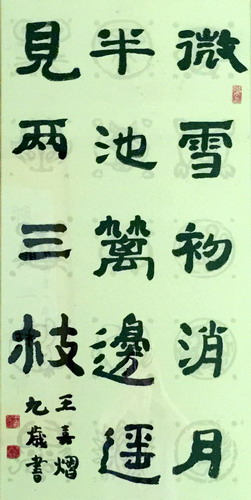 微雪初消月
半池篱邊遥
見两三枝
王嘉熠
九歲書